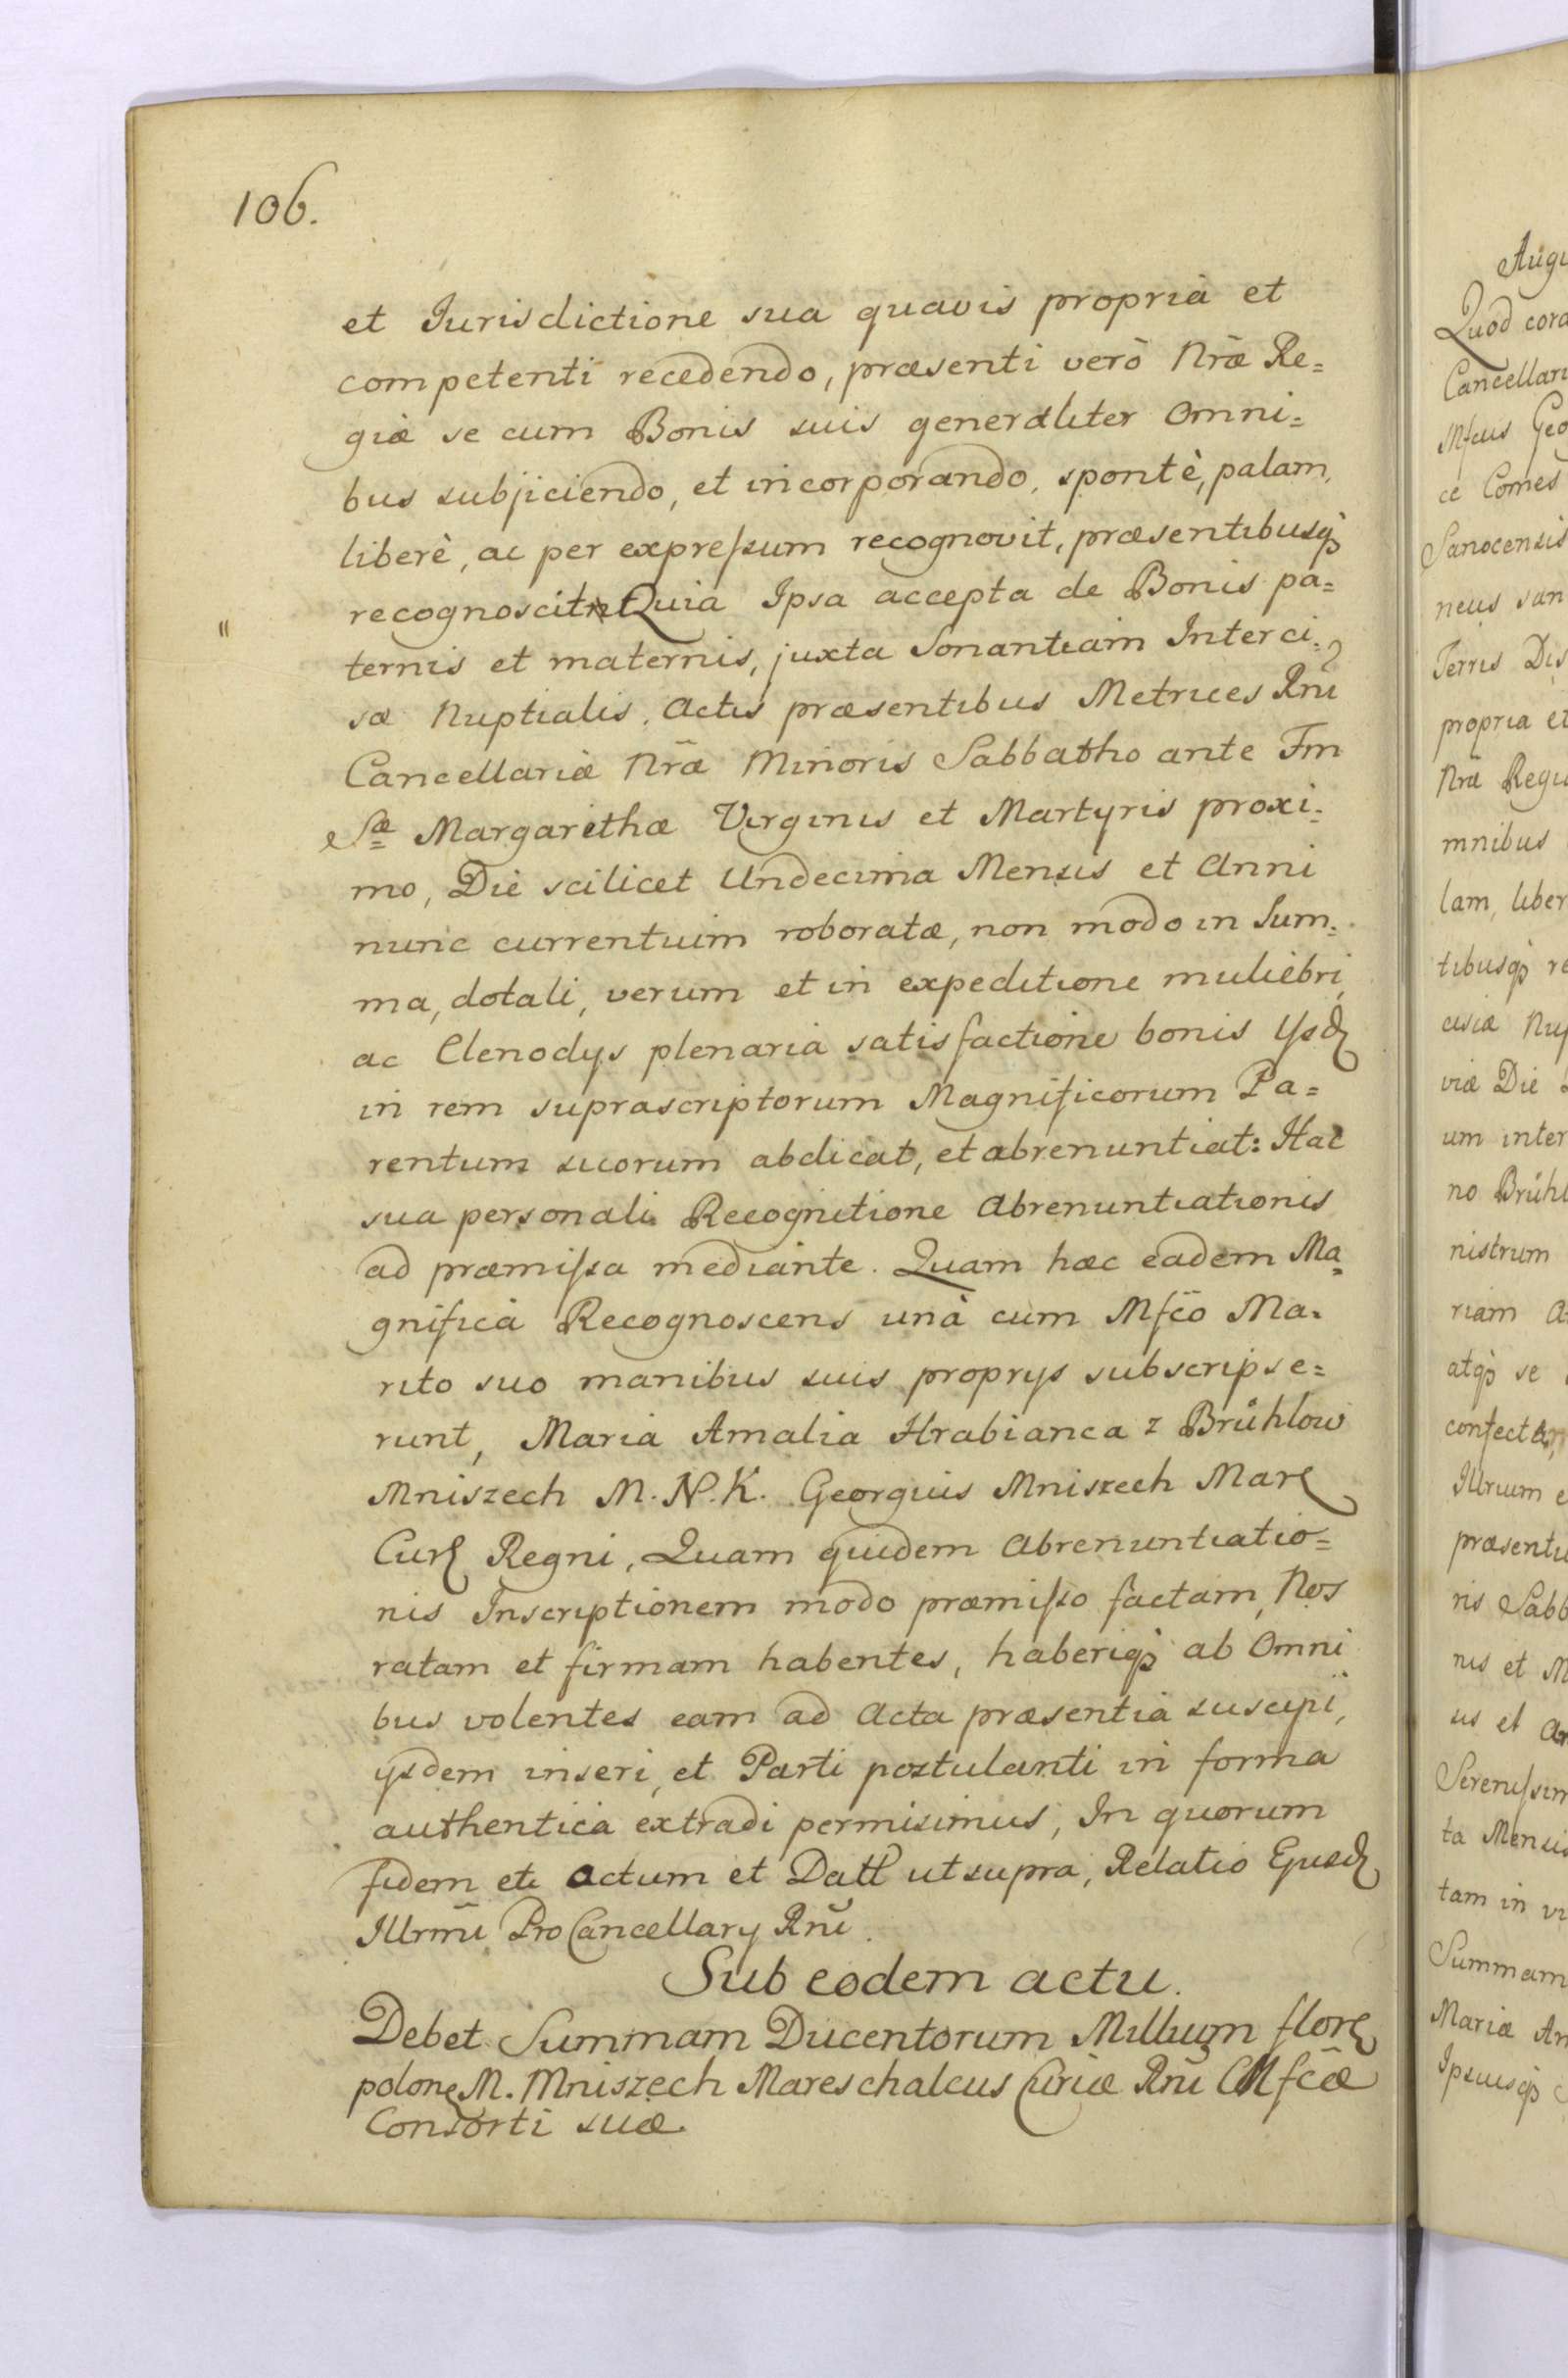 106.
et Jurisdictione sua quavis propria et
competenti recedendo, præsenti verò Nræ Re=
giæ se cum Bonis suis generaliter Omni=
bus subjiciendo, et incorporando, spontè, palam,
liberè, ac per expreſsum recognovit, præsentibusq̀
recognoscit Quia Ipsa accepta de Bonis pa=
"
ternis et maternis, juxta Sonantiam Interci=
sæ Nuptialis, Actis præsentibus Metrices Rni
Cancellariæ Nræ Minoris Sabbatho ante Fm
Sæ Margarethæ Virginis et Martyris proxi=
mo, Die scilicet Undecima Mensis et Anni
nunc currentium roboratæ, non modo in Sum=
ma, dotali, verum et in expeditione muliebri,
ac Clenodys plenaria satisfactione bonis ysd
in rem suprascriptorum Magnificorum Pa=
rentum suorum abdicat, et abrenuntiat: Hac
sua personali Recognitione Abrenuntiationis
ad præmiſsa mediante. Quam hæc eadem Ma=
gnifica Recognoscens unà cum Mfco Ma=
rito suo manibus suis proprys subscripse=
runt, Maria Amalia Hrabianca z Brühlow
Mniszech M. N. K. Georgius Mniszech Mar
Cur Regni, Quam quidem Abrenuntiatio=
nis Inscriptionem modo præmiſso factam, Nos
ratam et firmam habentes, haberiq̀ ab Omni
bus volentes eam ad Acta præsentia suscipi,
ysdem inseri, et Parti postulanti in forma
authentica extradi permisimus, In quorum
fidem et Actum et Datt ut supra, Relatio Ejusd
Illrmi ProCancellary Rni.
Sub eodem actu.
Debet Summam Ducentorum Millium flor
polon M. Mniszech Mareschalcus Curiæ Rni Mfcæ
Consorti suæ.
Quod cora
Cancellari
Mfcus Geo
ce Comes
Sanocensis
neus san
Terris Dis
propria et
Nræ Regi
mnibus
lam, liber
tibusq̀ re
cisiæ Nup
viæ Die
um inter
no Brühl
nistrum
riam A
atq̀ se
confect
Illrium e
præsenti
ris Sabb
nis et M
us et An
Sereniſsim
ta Mensis
tam in vi
Summam
Mariæ Am
Ipsiusq̀